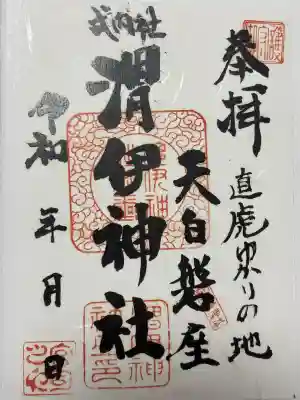 奉拝
直虎ゆかりの地
天白磐座
式内社
渭伊神社
令和
年
月
日